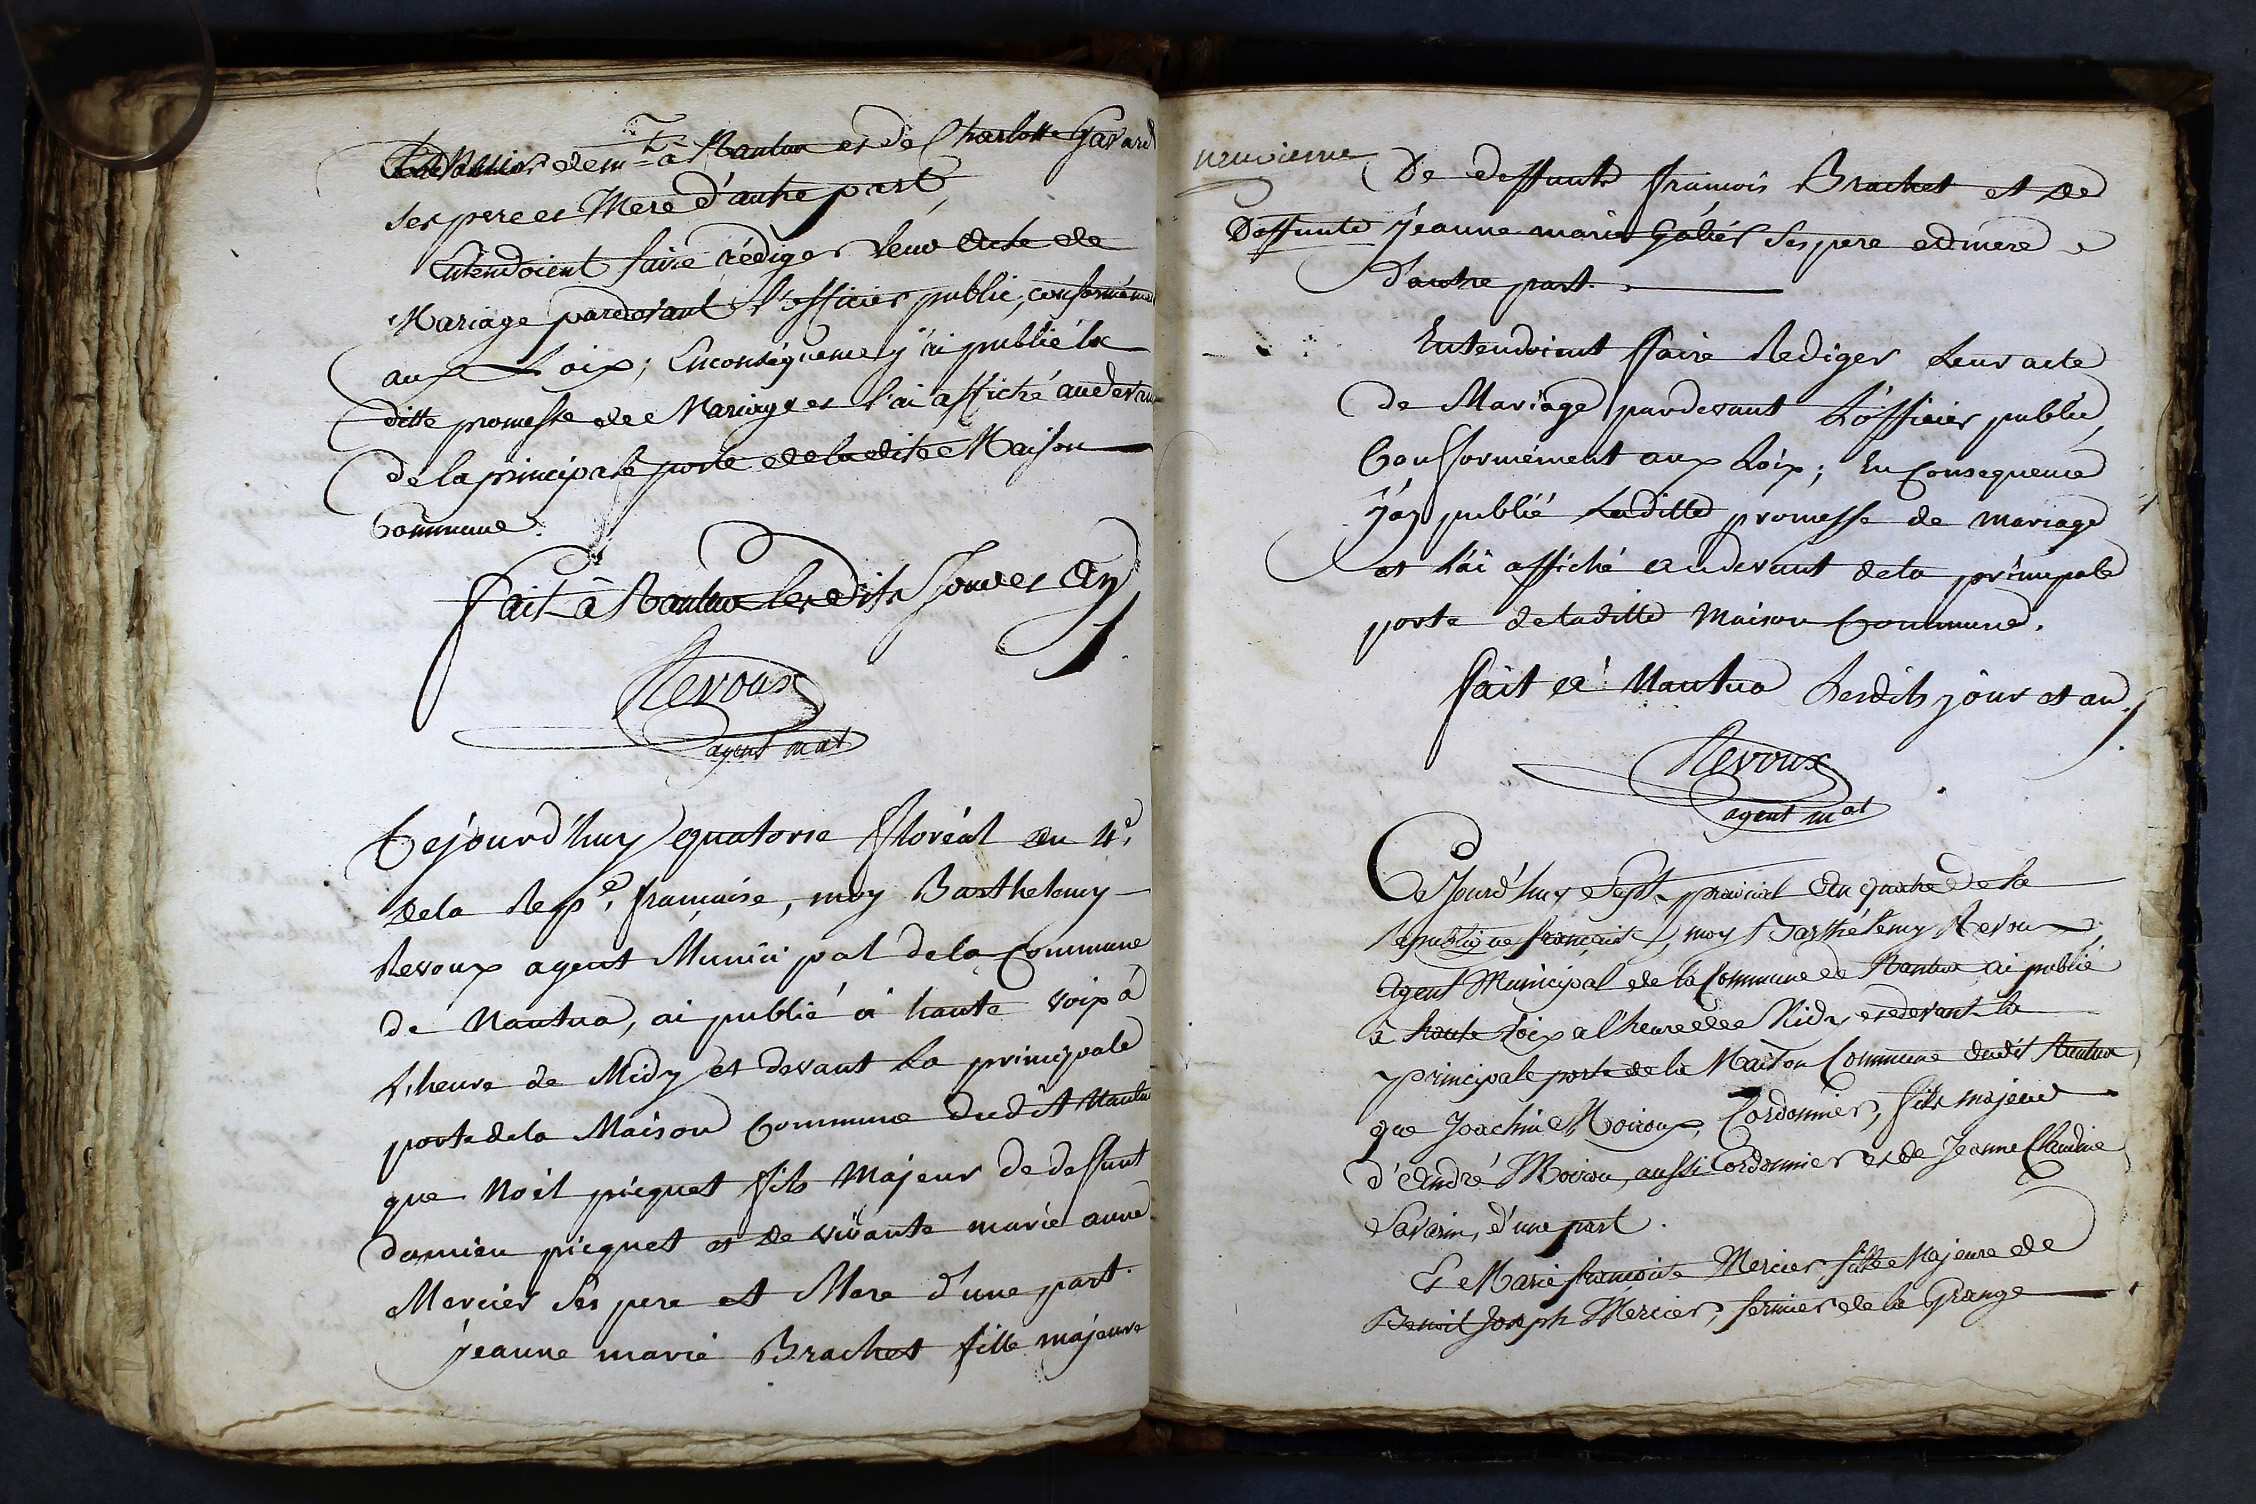 demt à Nantua et de Charlotte Gavard
ses pere et Mere d'autre part,
Entendoient faire rédiger leur Acte de
Mariage pardevant l'officier public, conformément
aux Loix; Enconséquence j'ai publié la
ditte promesse de Mariage et l'ai affiché audevant
de la principale porte de ladite Maison
Commune.
fait à Nantua lesdits Jour et An
Revoux
agent mal
Cejourd'huy quatorse floréal an 4e.
dela Repe. française, moy Barthelemy
Revoux agent Municipal dela Commune
de Nantua, ai publié à haute voix à
l'heure de Midy et devant la principale
porte dela Maison Commune dudit Nantua
que Noël picquet fils Majeur de deffunt
damien picquet et de vivante marie anne
Mercier Ses pere et Mere d'une part.
jeanne marie Brachet fille majeure
neuvieme
De deffunt françois Brachet et de
Deffunte Jeanne marie Galier Ses pere et mere
d'autre part.
Entendoient ffaire Rediger Leur acte
de Mariage pardevant L'officier public,
Confformément aux Loix; En Consequence
j'ay publié Laditte promesse de mariage
et L'ai affiché audevant dela principale
porte deladitte Maison Commune.
fait à Nantua Lesdits jour et an.
Revoux
agent mal
Cejourd'huy Sept prairial An quatre de la
republique française, moy Barthélemy Revoux
Agent Municipal de la Commune de Nantua, ai publié
à haute voix a l'heure de Midy et devant la
principale porte de la Maison Commune dudit Nantua,
que Joachim Moiroux, Cordonnier, fils majeur
d'André Moirou, aussi Cordonnier et de Jeanne Claudine
Savarin, d'une part.
Et Marie françoise Mercier fille Majeure de
Benoit Joseph Mercier, fermier de la Grange